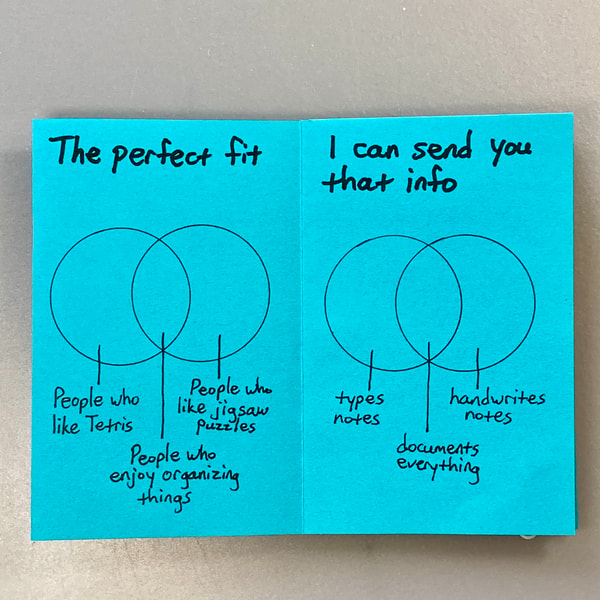 The perfect fit
People who
like Tetris
People who
like jigsaw
puzzles
People who
enjoy organizing
things
I can send you
that info
types
notes
handwrites
notes
documents
everything